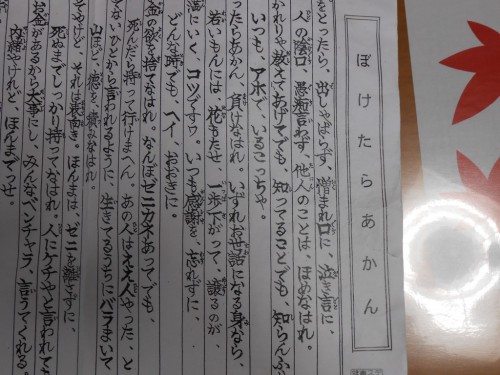 ぼけたらあかん
をとったら、出しゃばらず、憎まれ口に、泣き言に、
人の陰口、愚痴言わず、他人のことは、ほめなはれ。
かれりゃ教えてあげてでも、知ってることでも、知らんふり
いつも、アホで、いるこっちゃ。
ったらあかん、負けなはれ。いずれお世話になる身なら、
若いもんには、花もたせ、一歩下がって、譲るのが、
満にいく、コツですワ。いつも感謝を、忘れずに、
どんな時でも、ヘイ、おおきに。
お金の欲を、捨てなはれ。なんぼゼニカネあってでも、
死んだら持って行けまへん。あの人はええ人やった、と
ないひとから言われるように、生きてるうちにバラまいて
山ほど、徳を、積みなはれ。
やけど、それは表向き。ほんまは、ゼニを離さずに、
死ぬまでしっかり持ってなはれ。人にケチやと言われても
お金があるから大事にし、みんなベンチャラ、言うてくれる。
内緒やけれど、ほんまでっせ。